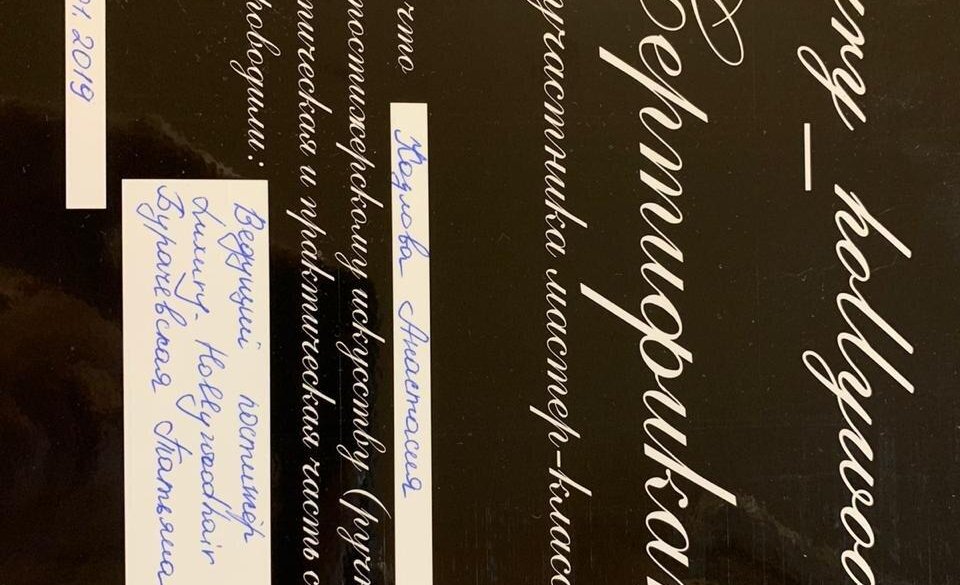 ury_hollywoo
Сертифика
участника мастер-клас
что Козлова Анастасия
постижерскому искусству (ручн
тическая и практическая часть
роводили: Ведущий постижер
Luxury-Hollywoodhair
Бурачевская Татьяна
01.2019